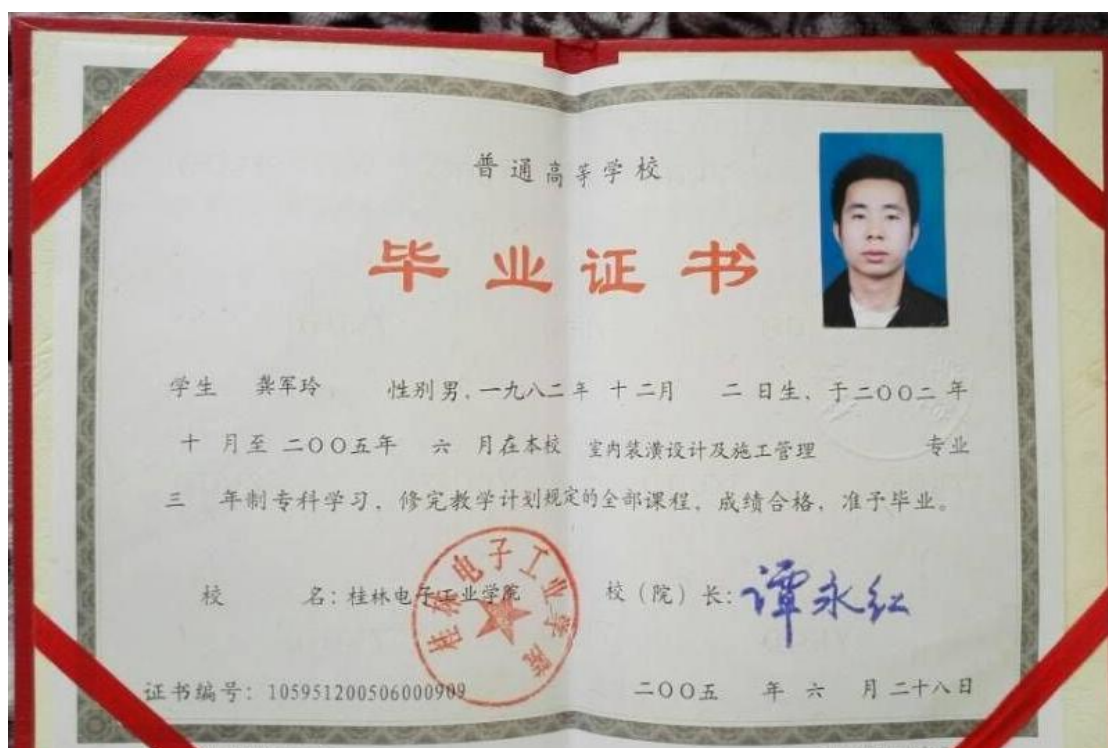 普通高等学校
毕业证书
学生 龚军玲 性别男,一九八二年 十二月 二日生,于二〇〇二年
十 月至二〇〇五年 六 月在本校 室内装潢设计及施工管理 专业
三 年制专科学习,修完教学计划规定的全部课程,成绩合格,准予毕业。
校 名:桂林电子工业学院 校(院)长:谭永红
桂林电子工业学院
证书编号:105951200506000909 二〇〇五 年 六 月 二十八日